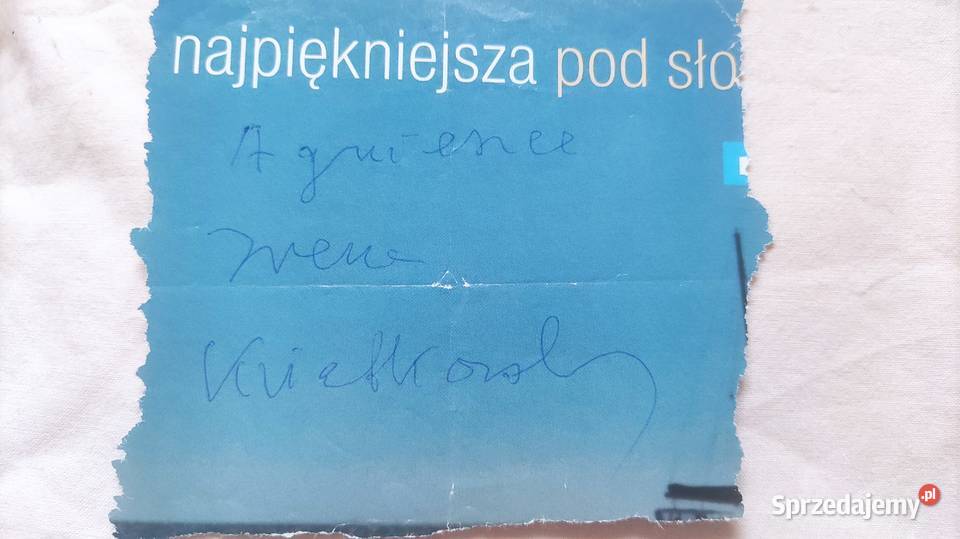 najpiękniejsza pod sło
Agnieszce
Irena
Kwiatkowska
Sprzedajemy.pl